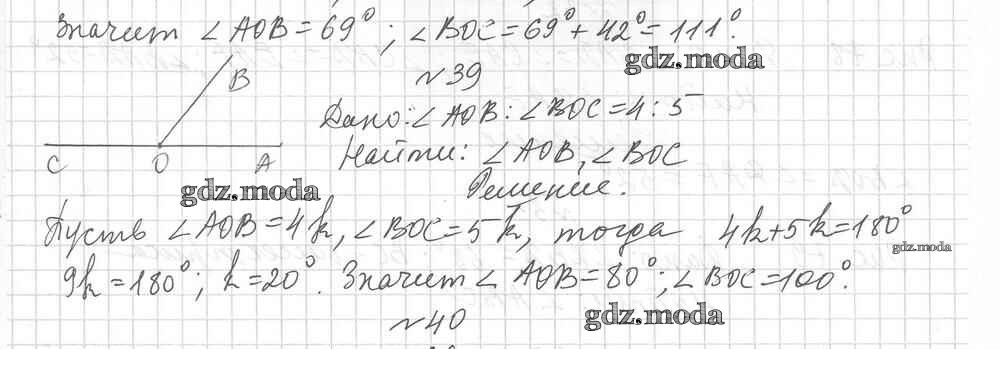 Значит ∠AOB = 69°; ∠BOC = 69° + 42° = 111°.
gdz.moda
№39
B
Дано: ∠AOB : ∠BOC = 4 : 5
C O A
Найти: ∠AOB, ∠BOC
gdz.moda
Решение.
Пусть ∠AOB = 4k, ∠BOC = 5k, тогда 4k + 5k = 180°
gdz.moda
9k = 180°; k = 20°. Значит ∠AOB = 80°; ∠BOC = 100°.
№40
gdz.moda